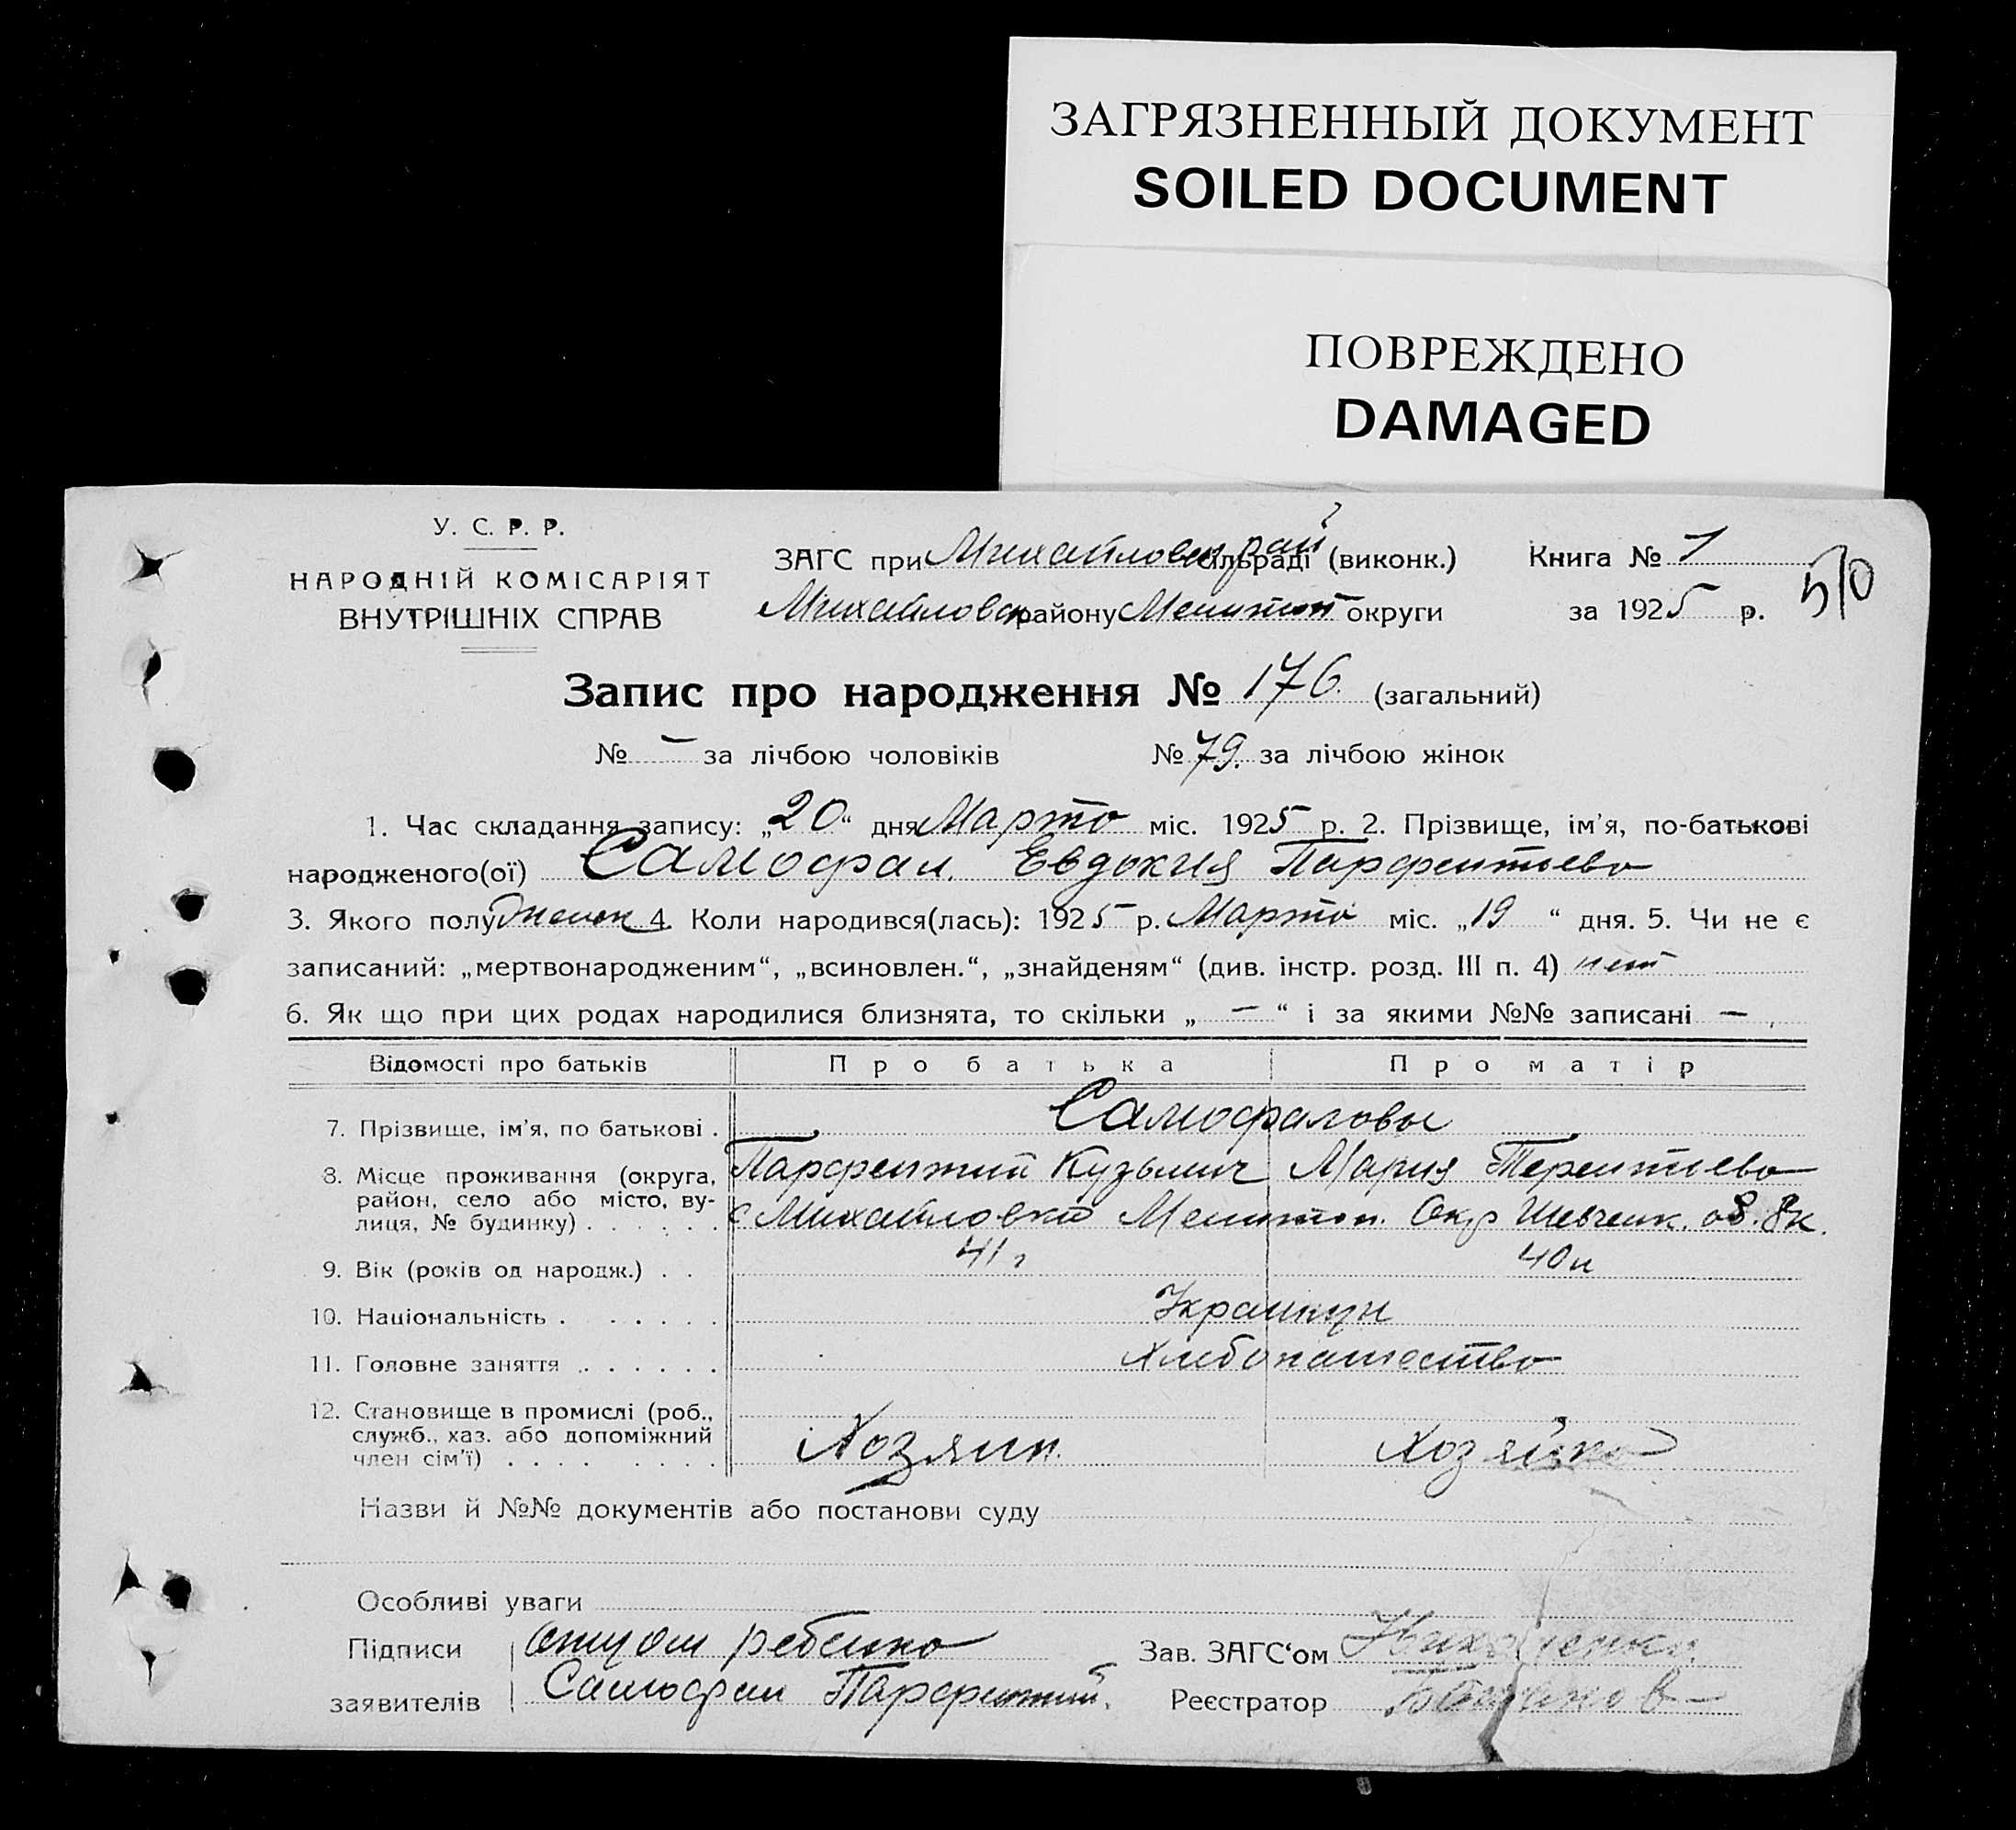 ЗАГРЯЗНЕННЫЙ ДОКУМЕНТ
SOILED DOCUMENT
ПОВРЕЖДЕНО
DAMAGED
У. С. Р. Р.
НАРОДНІЙ КОМІСАРІЯТ
ВНУТРІШНІХ СПРАВ
ЗАГС при Михайловск рай сільраді (виконк.)
Михайловск району Мелитоп округи
Книга № 1
за 1925 р.
510
Запис про народження № 176. (загальний)
№ – за лічбою чоловіків № 79. за лічбою жінок
1. Час складання запису: „20“ дня Марта міс. 1925 р. 2. Прізвище, ім'я, по-батькові
народженого(ої) Самофал. Евдокия Парфентьева
3. Якого полу Женск 4. Коли народився(лась): 1925 р. Марта міс. „19“ дня. 5. Чи не є
записаний: „мертвонародженим“, „всиновлен.“, „знайденям“ (див. інстр. розд. III п. 4) нет
6. Як що при цих родах народилися близнята, то скільки „ – “ і за якими №№ записані –
Відомості про батьків Про батька Про матір
7. Прізвище, ім'я, по батькові . Самофаловы
Парфентий Кузьмич Мария Терентьева
8. Місце проживання (округа,
район, село або місто, ву-
лиця, № будинку) . . . . . . с Михайловка Мелитоп. Окр Шевченк.
9. Вік (років од народж.) . . 41 г 40 л
10. Національність . . . . . . Украинцы
11. Головне заняття . . . . . . Хлебопашество
12. Становище в промислі (роб.,
служб., хаз. або допоміжний
член сім'ї) . . . . . . . . Хозяин. Хозяйка
Назви й №№ документів або постанови суду
Особливі уваги
Підписи отец ребенка
заявителів Самофал Парфентий.
Зав. ЗАГС'ом
Реєстратор